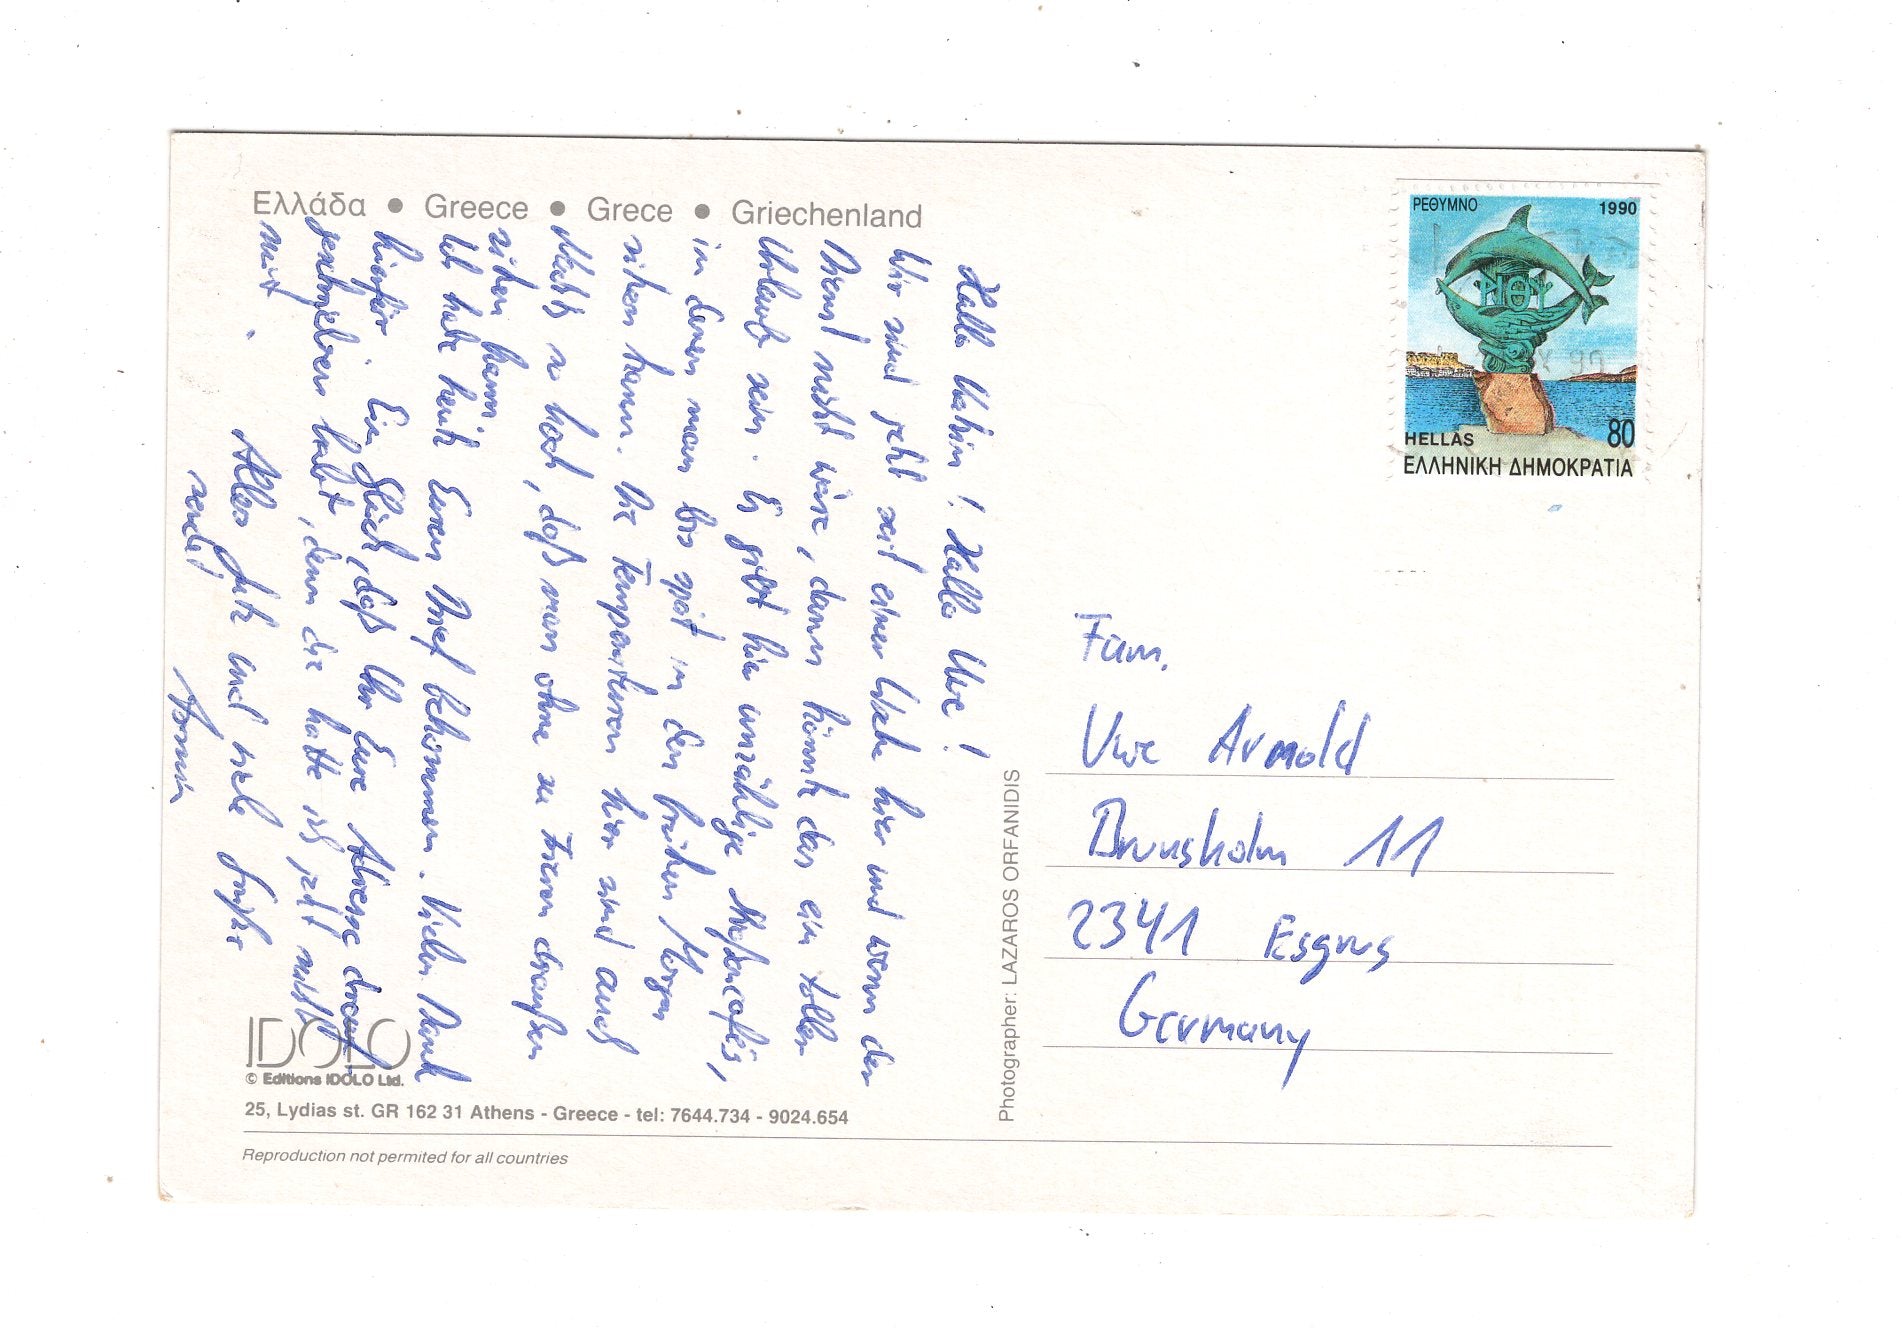 Ελλάδα ● Greece ● Grece ● Griechenland
Hallo Katrin! Hallo Uwe!
Wir sind jetzt seit einer Woche hier und wenn der
Dienst nicht wäre, dann könnte das ein toller
Urlaub sein. Es gibt hier unzählige Straßencafés,
in denen man bis spät in den frühen Morgen
sitzen kann. Die Temperaturen hier sind auch
nachts so hoch, daß man ohne zu frieren draußen
sitzen kann.
Ich habe heute Euren Brief bekommen. Vielen Dank
hierfür. Ein Glück, daß Ihr Eure Adresse drauf
geschrieben habt, denn die hatte ich jetzt nicht
mit.
Alles Gute und viele Grüße
sendet
Armin
ΡΕΘΥΜΝΟ 1990
ΡΕΘΥ
HELLAS 80
ΕΛΛΗΝΙΚΗ ΔΗΜΟΚΡΑΤΙΑ
Fam.
Uwe Arnold
Brunsholm 11
2341 Esgrus
Germany
Photographer: LAZAROS ORFANIDIS
IDOLO
© Editions IDOLO Ltd.
25, Lydias st. GR 162 31 Athens - Greece - tel: 7644.734 - 9024.654
Reproduction not permited for all countries